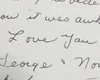 now it was awk
Love You
George & No